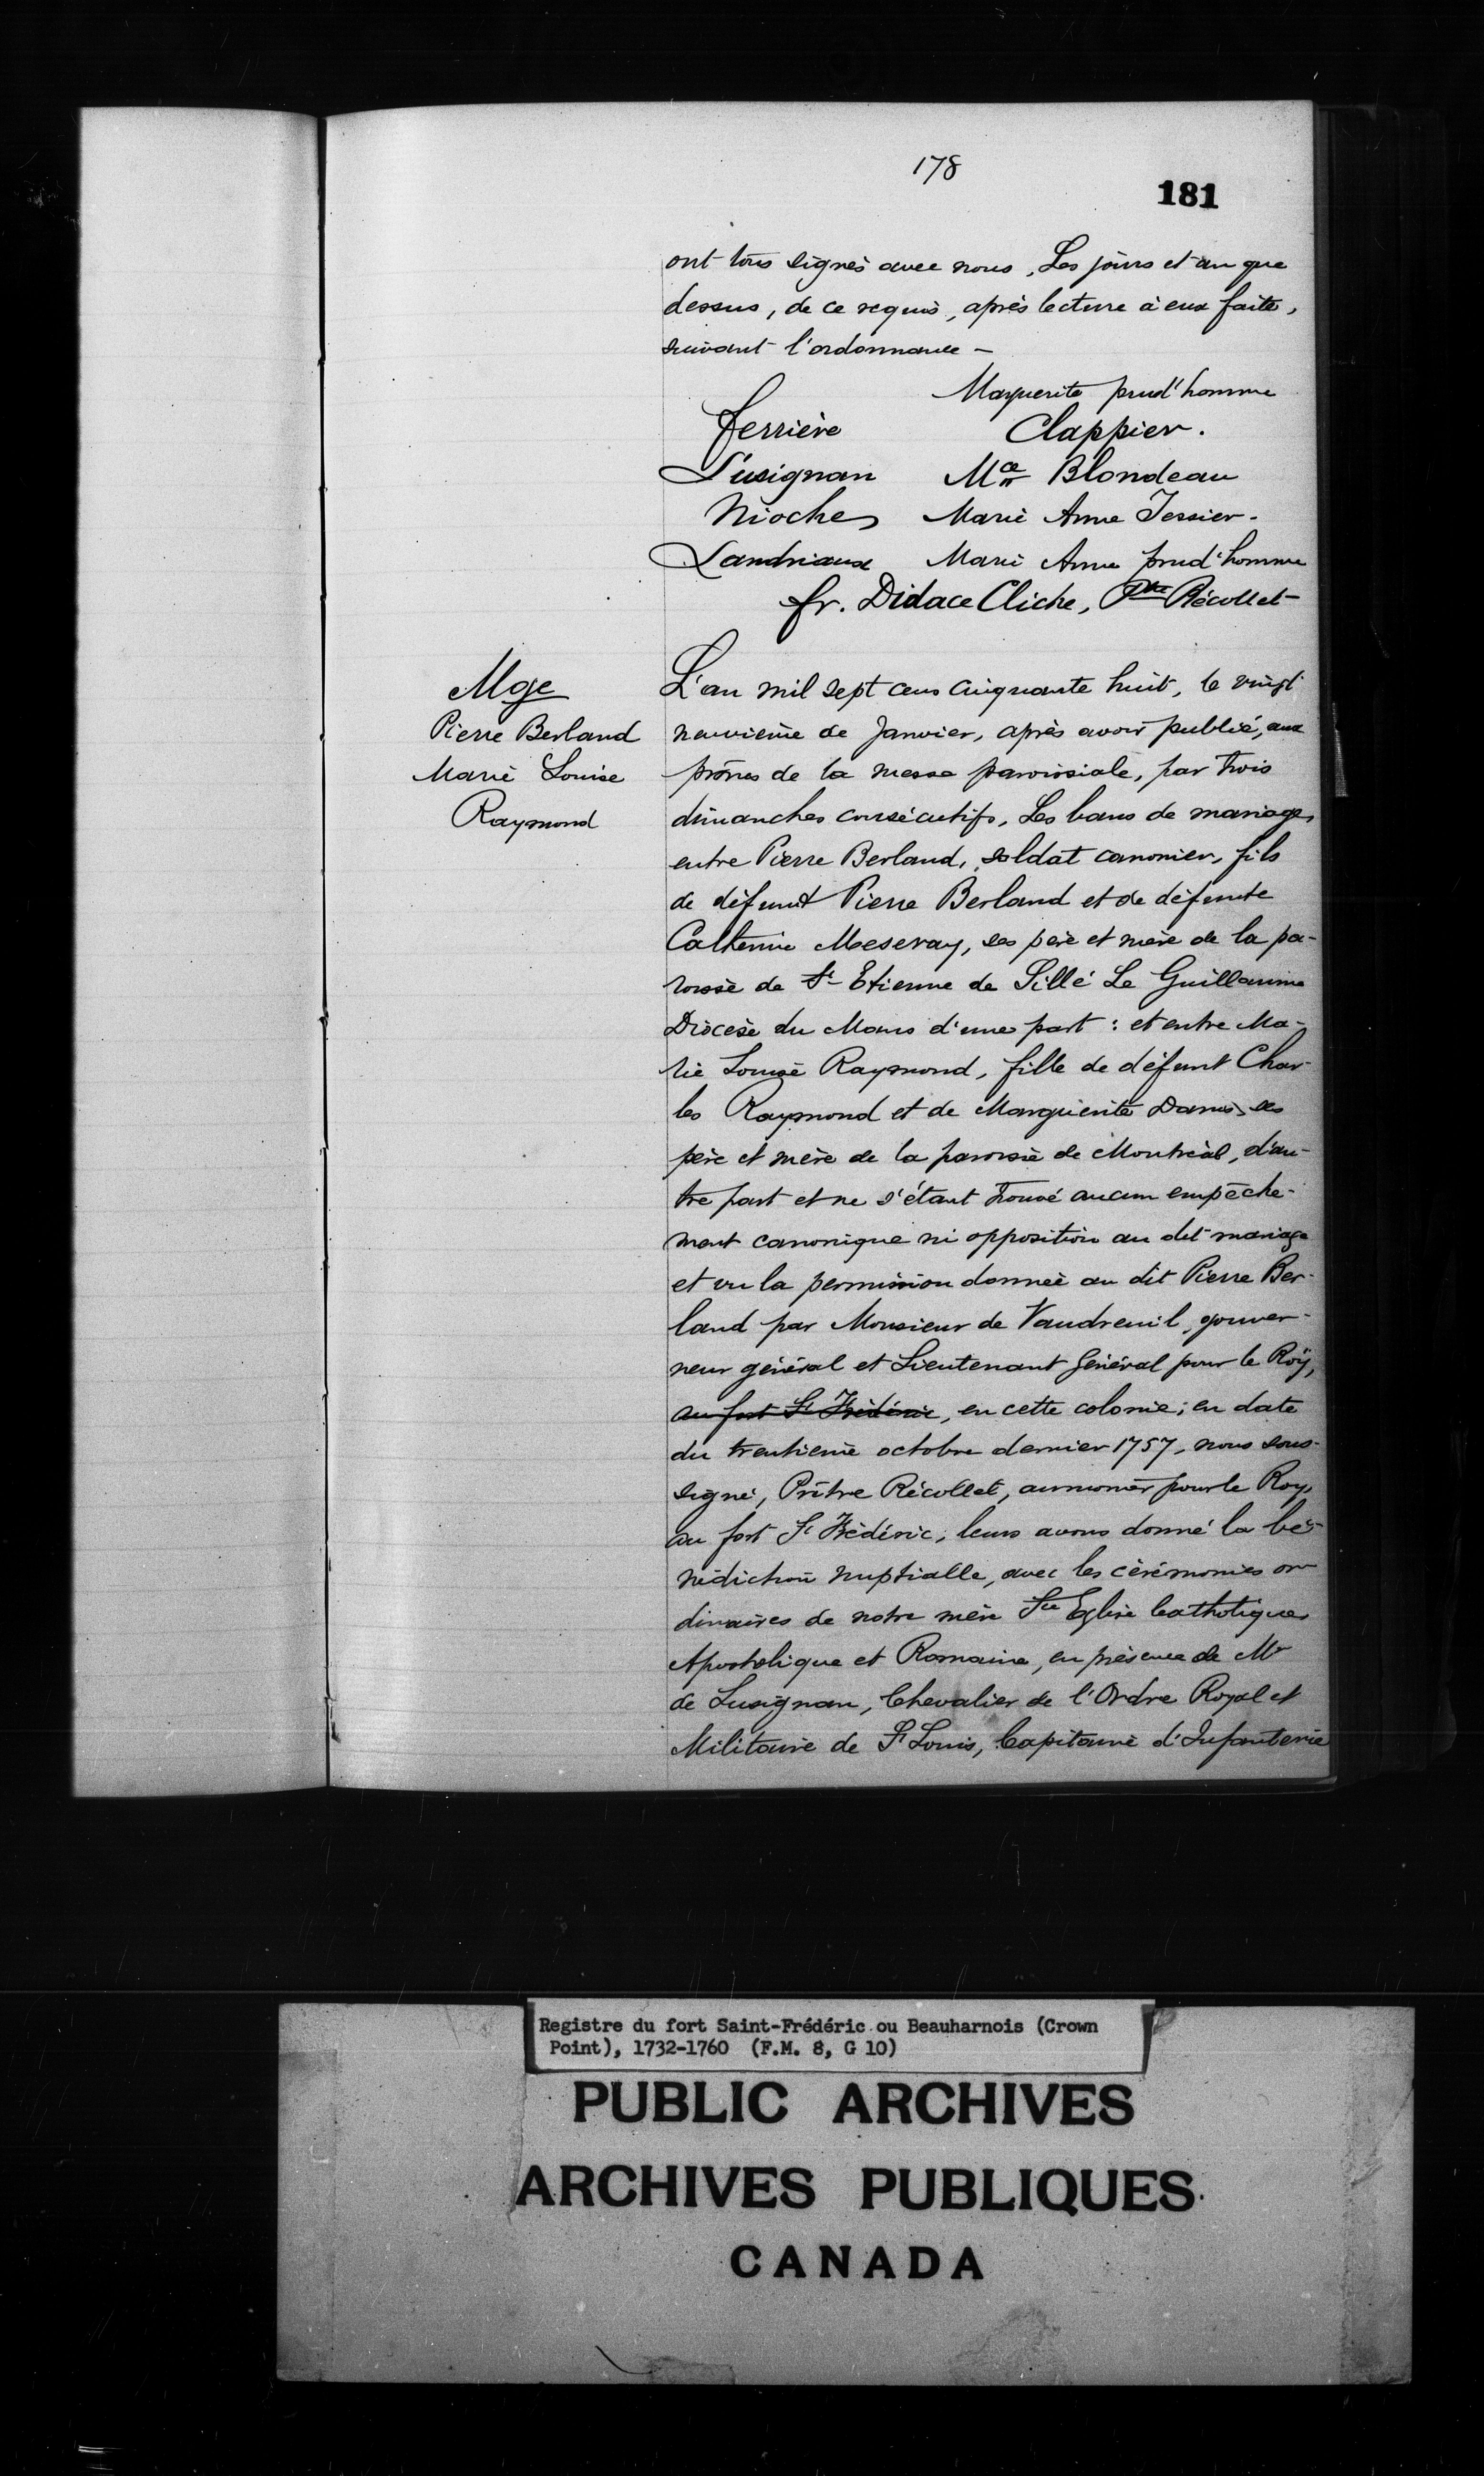 178
181
ont tous signés avec nous, Les jours et an que
dessus, de ce requis, après lecture à eux faite,
suivant l'ordonnance —
Marguerite prud'homme
ferrière Clappier.
Lusignan Mce Blondeau
Nioches Marie Anne Tessier.
Landriaux Marie Anne prud'homme
fr. Didace Cliche, Ptre Récollet
Mge
Pierre Berland
Marie Louise
Raymond
L'an mil sept cens cinquante huit, le vingt
neuvieme de Janvier, après avoir publié, aux
prônes de la messe paroissiale, par trois
dimanches consécutifs, Les bans de mariage,
entre Pierre Berland, soldat canonier, fils
de défunt Pierre Berland et de défunte
Catherine Meseray, ses père et mère de la pa-
roisse de St Etienne de Sillé Le Guillaume
Diocèse du Mans d'une part : et entre Ma-
rie Louise Raymond, fille de défunt Char-
les Raymond et de Marguerite Danis, ses
père et mère de la paroisse de Montréal, d'au-
tre part et ne s'étant trouvé aucun empêche-
ment canonique ni opposition au dit mariage
et vu la permission donnée au dit Pierre Ber-
land par Monsieur de Vaudreuil, gouver-
neur général et Lieutenant Général pour le Roÿ,
au fort St Frédéric, en cette colonie ; en date
du trentieme octobre dernier 1757, nous sous-
signé, Prêtre Récollet, aumonier pour le Roy,
au fort St Frédéric, leurs avons donné la bé-
nédiction nuptialle, avec les cérémonies or-
dinaires de notre mère Ste Eglise Catholique,
Apostolique et Romaine, en présence de Mr
de Lusignan, Chevalier de l'Ordre Royal et
Militaire de St Louis, Capitaine d'Infanterie
Registre du fort Saint-Frédéric ou Beauharnois (Crown
Point), 1732-1760 (F.M. 8, G 10)
PUBLIC ARCHIVES
ARCHIVES PUBLIQUES
CANADA